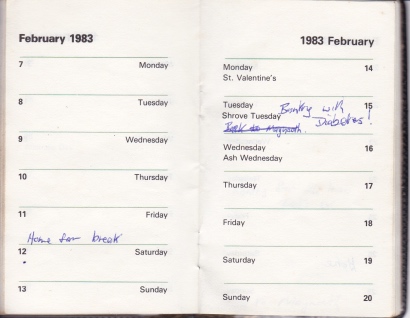 February 1983
7 Monday
8 Tuesday
9 Wednesday
10 Thursday
11 Friday
Home for break
12 Saturday
13 Sunday
1983 February
Monday 14
St. Valentine's
Tuesday 15
Shrove Tuesday
with
Diabetes!
Back to Maynooth.
Wednesday 16
Ash Wednesday
Thursday 17
Friday 18
Saturday 19
Sunday 20